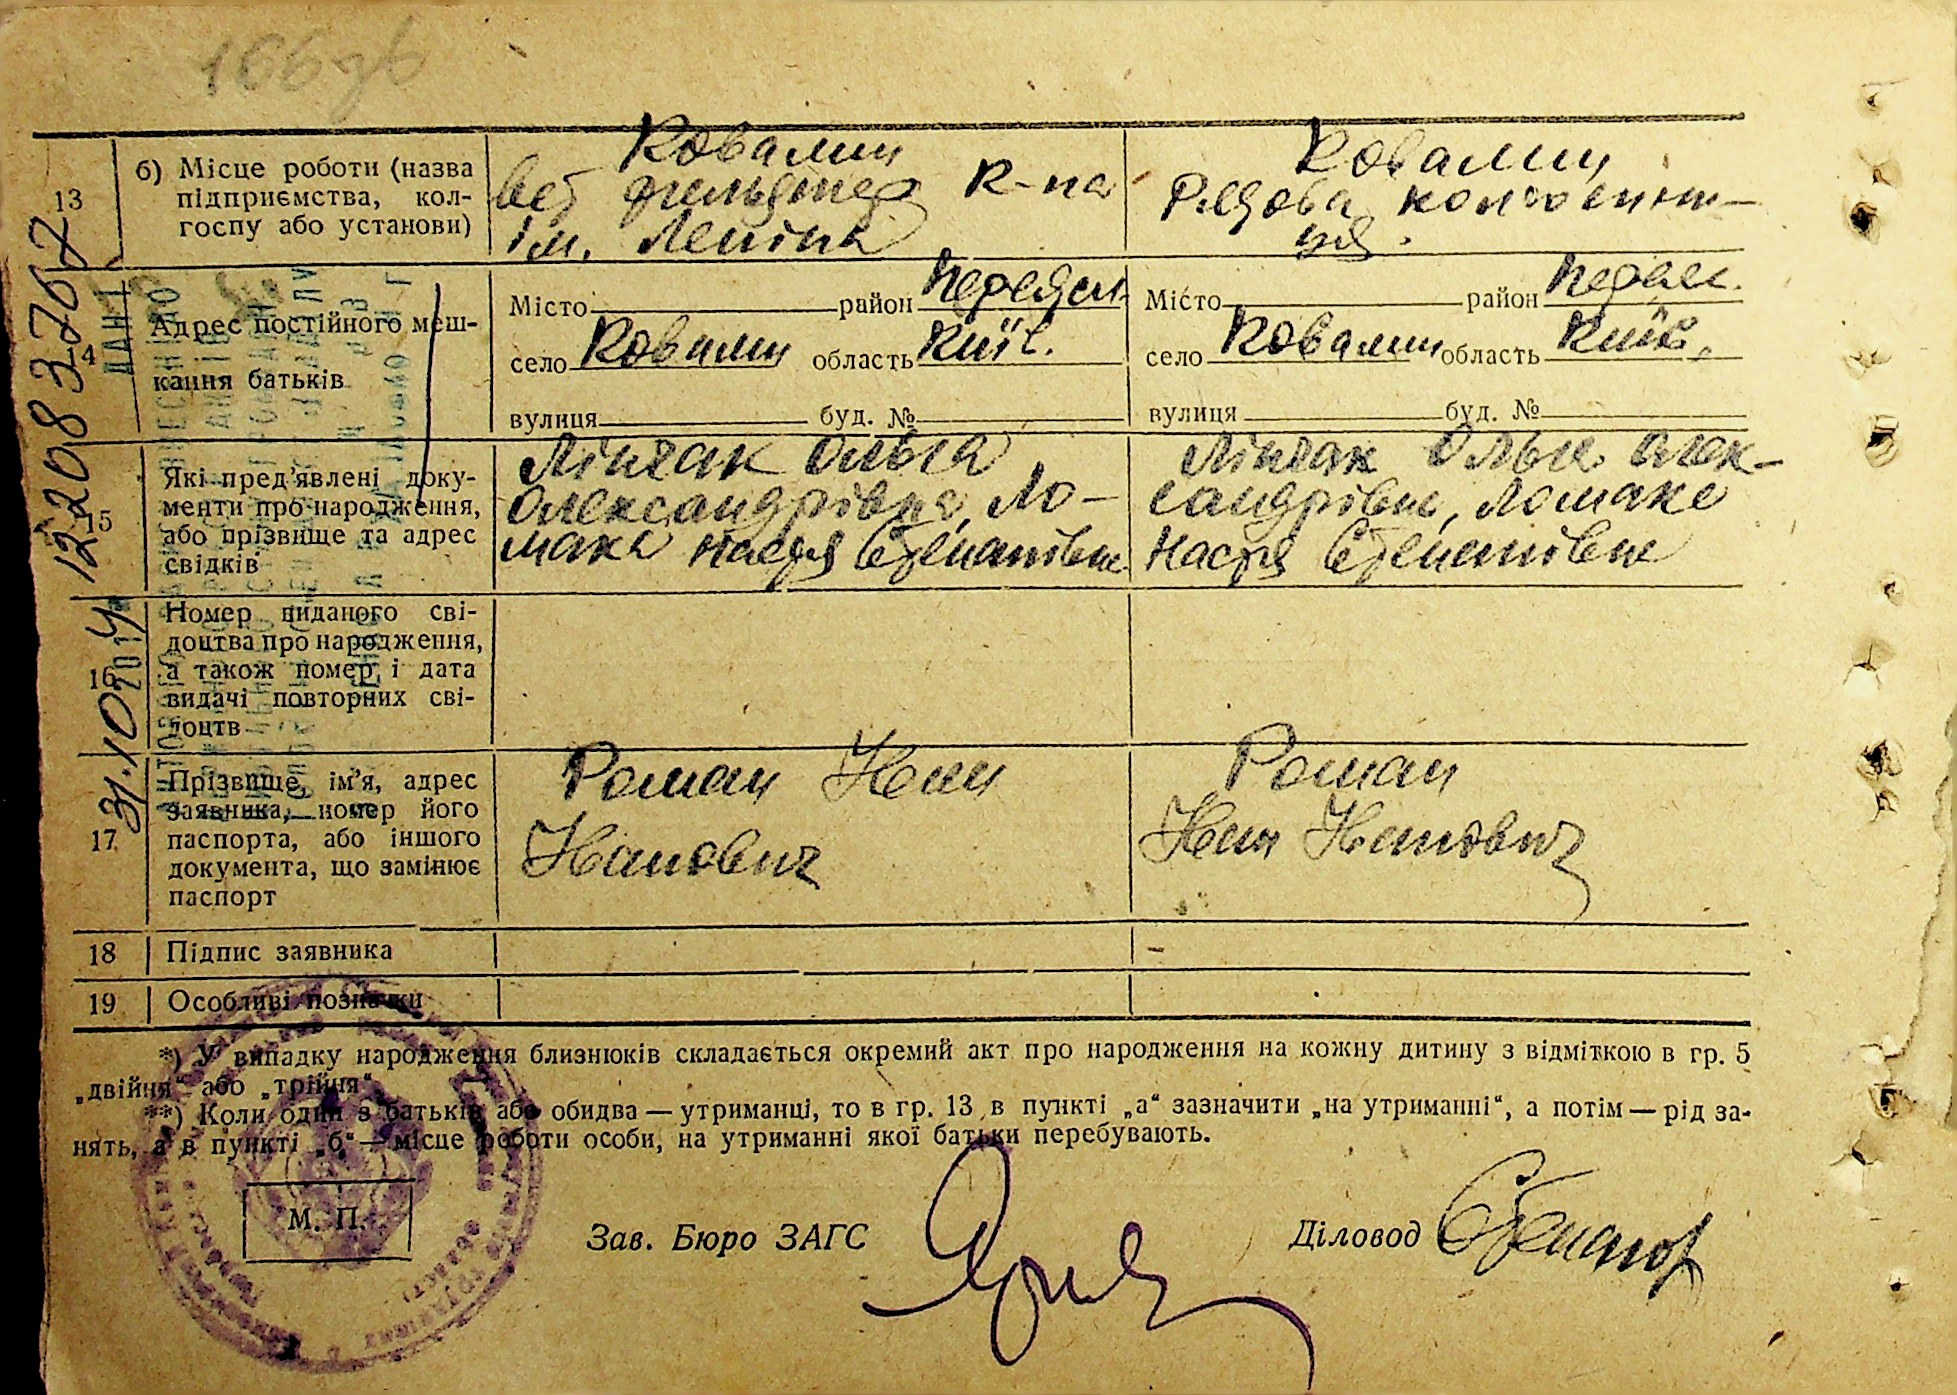 13
б) Місце роботи (назва
підприємства, кол-
госпу або установи)
Ковалин
вет фельдшер к-па
ім. Леніна
Ковалин
Рядова колгоспни-
ця.
Адрес постійного меш-
кання батьків
Місто район Переясл.
село Ковалин область Київ.
вулиця буд. №
Місто район Переясл.
село Ковалин область Київ.
вулиця буд. №
15
Які пред'явлені доку-
менти про народження,
або прізвище та адрес
свідків
Лінчак Ольга
Олександрівна, Ло-
мака Настя Степанівна
Лінчак Ольга Олек-
сандрівна, Ломака
Настя Степанівна
16
Номер виданого сві-
доцтва про народження,
а також номер і дата
видачі повторних сві-
доцтв
17
Прізвище, ім'я, адрес
заявника, номер його
паспорта, або іншого
документа, що замінює
паспорт
Роман Іван
Іванович
Роман
Іван Іванович
18 Підпис заявника
19 Особливі позначки
*) У випадку народження близнюків складається окремий акт про народження на кожну дитину з відміткою в гр. 5
„двійня“ або „трійня“
**) Коли один з батьків або обидва — утриманці, то в гр. 13 в пункті „а“ зазначити „на утриманні“, а потім — рід за-
нять, а в пункті „б“ — місце роботи особи, на утриманні якої батьки перебувають.
М. П.
Зав. Бюро ЗАГС
Діловод
12208 3767
31.10 2014